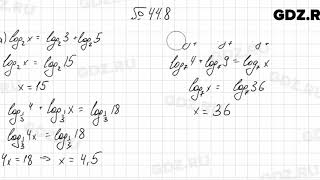 № 44.8
GDZ.RU
а) log₂ x = log₂ 3 + log₂ 5
log₂ x = log₂ 15
x = 15
log_{1/3} 4 + log_{1/3} x = log_{1/3} 18
log_{1/3} 4x = log_{1/3} 18
4x = 18 ⇒ x = 4,5
4 + log 9 = log x
log x = log 36
x = 36